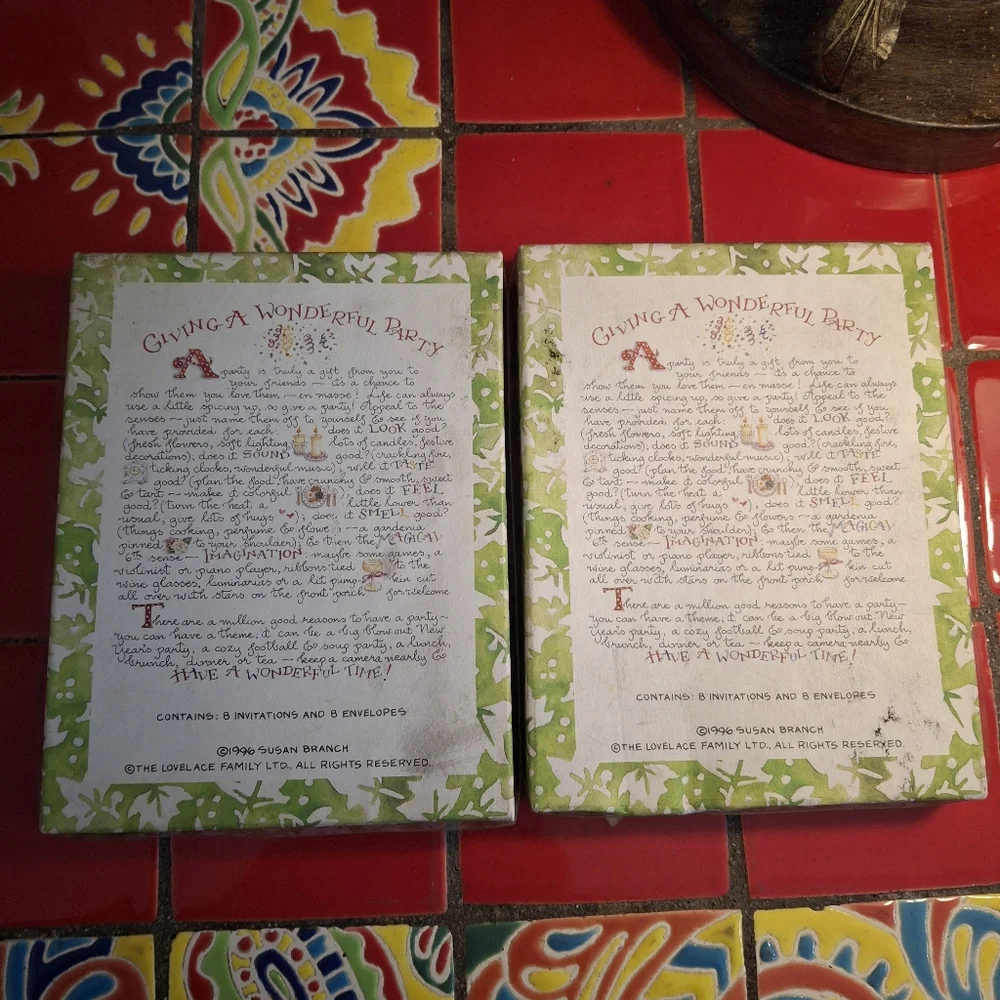 GIVING A WONDERFUL PARTY
A party is truly a gift from you to
your friends — it's a chance to
show them you love them — en masse! Life can always
use a little spicing up, so give a party! Appeal to the
senses — just name them off to yourself & see if you
have provided for each: does it LOOK good?
(fresh flowers, soft lighting, lots of candles, festive
decorations); does it SOUND good? (crackling fire,
ticking clocks, wonderful music); will it TASTE
good? (plan the food, have crunchy & smooth, sweet
& tart — make it colorful); does it FEEL
good? (turn the heat a little lower than
usual, give lots of hugs); does it SMELL good?
(things cooking, perfume & flowers — a gardenia
pinned to your shoulder); & then the MAGICAL
6th sense — IMAGINATION maybe some games, a
violinist or piano player, ribbons tied to the
wine glasses, luminarias or a lit pumpkin cut
all over with stars on the front porch for welcome
There are a million good reasons to have a party —
you can have a theme; it can be a big blow out New
Year's party, a cozy football & soup party, a lunch,
brunch, dinner or tea — keep a camera nearby &
HAVE A WONDERFUL TIME!
CONTAINS: 8 INVITATIONS AND 8 ENVELOPES
©1996 SUSAN BRANCH
©THE LOVELACE FAMILY LTD., ALL RIGHTS RESERVED.
GIVING A WONDERFUL PARTY
A party is truly a gift from you to
your friends — it's a chance to
show them you love them — en masse! Life can always
use a little spicing up, so give a party! Appeal to the
senses — just name them off to yourself & see if you
have provided for each: does it LOOK good?
(fresh flowers, soft lighting, lots of candles, festive
decorations); does it SOUND good? (crackling fire,
ticking clocks, wonderful music); will it TASTE
good? (plan the food, have crunchy & smooth, sweet
& tart — make it colorful); does it FEEL
good? (turn the heat a little lower than
usual, give lots of hugs); does it SMELL good?
(things cooking, perfume & flowers — a gardenia
pinned to your shoulder); & then the MAGICAL
6th sense — IMAGINATION maybe some games, a
violinist or piano player, ribbons tied to the
wine glasses, luminarias or a lit pumpkin cut
all over with stars on the front porch for welcome
There are a million good reasons to have a party —
you can have a theme; it can be a big blow out New
Year's party, a cozy football & soup party, a lunch,
brunch, dinner or tea — keep a camera nearby &
HAVE A WONDERFUL TIME!
CONTAINS: 8 INVITATIONS AND 8 ENVELOPES
©1996 SUSAN BRANCH
©THE LOVELACE FAMILY LTD., ALL RIGHTS RESERVED.